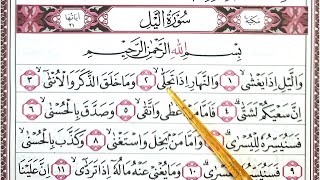 سُورَةُ الَّيْلِ
مَكِّيَّة
آيَاتُهَا ٢١
بِسْمِ اللهِ الرَّحْمٰنِ الرَّحِيْمِ
وَالَّيْلِ اِذَا يَغْشٰى ١ وَالنَّهَارِ اِذَا تَجَلّٰى ٢ وَمَا خَلَقَ الذَّكَرَ وَالْاُنْثٰى ٣
اِنَّ سَعْيَكُمْ لَشَتّٰى ٤ فَاَمَّا مَنْ اَعْطٰى وَاتَّقٰى ٥ وَصَدَّقَ بِالْحُسْنٰى ٦
فَسَنُيَسِّرُهٗ لِلْيُسْرٰى ٧ وَاَمَّا مَنْ بَخِلَ وَاسْتَغْنٰى ٨ وَكَذَّبَ بِالْحُسْنٰى ٩
فَسَنُيَسِّرُهٗ لِلْعُسْرٰى ١٠ وَمَا يُغْنِيْ عَنْهُ مَالُهٗٓ اِذَا تَرَدّٰى ١١ اِنَّ عَلَيْنَا